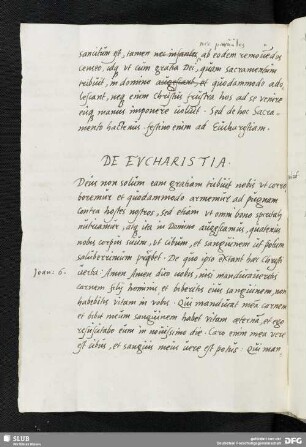 nec pueriles
sancitum est, tamen nec infantes ab eodem removendos
censeo, idq ut cum gratia Dei, quam sacramentum
tribuit, in domino augescant, et quodammodo ado-
lescant, neq enim Christus frustra hos ad se venire
eisq manus imponere voluit. Sed de hoc Sacra-
mento hactenus. festino enim ad Eucharistiam.
DE EVCHARISTIA.
Deus non solum eam gratiam tribuit nobis ut corro-
boremur et quodammodo armemur ad pugnam
contra hostes nostros, sed etiam ut omni bono spirituali
nutriamur, atq ita in Domino augescamus, quatenus
nobis corpus suum, ut cibum, et sanguinem ut potum
saluberrimum præbet. De quo ipso extant hec Christi
Joan: 6. verba: Amen Amen dico vobis, nisi manducaveritis
carnem filij hominis et biberitis eius sanguinem, non
habebitis vitam in vobis. Qui manducat meã carnem
et bibit meum sanguinem habet vitam æternã, et ego
resuscitabo eum in novissimo die: Caro enim mea vere
est cibus, et sanguis meus vere est potus: Qui man-
SLUB
DFG